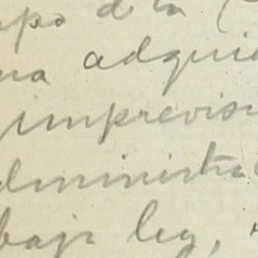 po de la (
na adqui
imprevis
dministra
bajo ley,